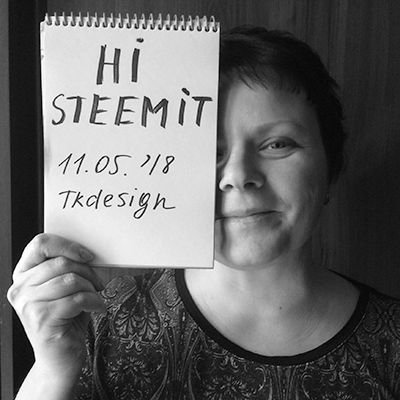 Hi
STEEMiT
11.05.'18
Tkdesign